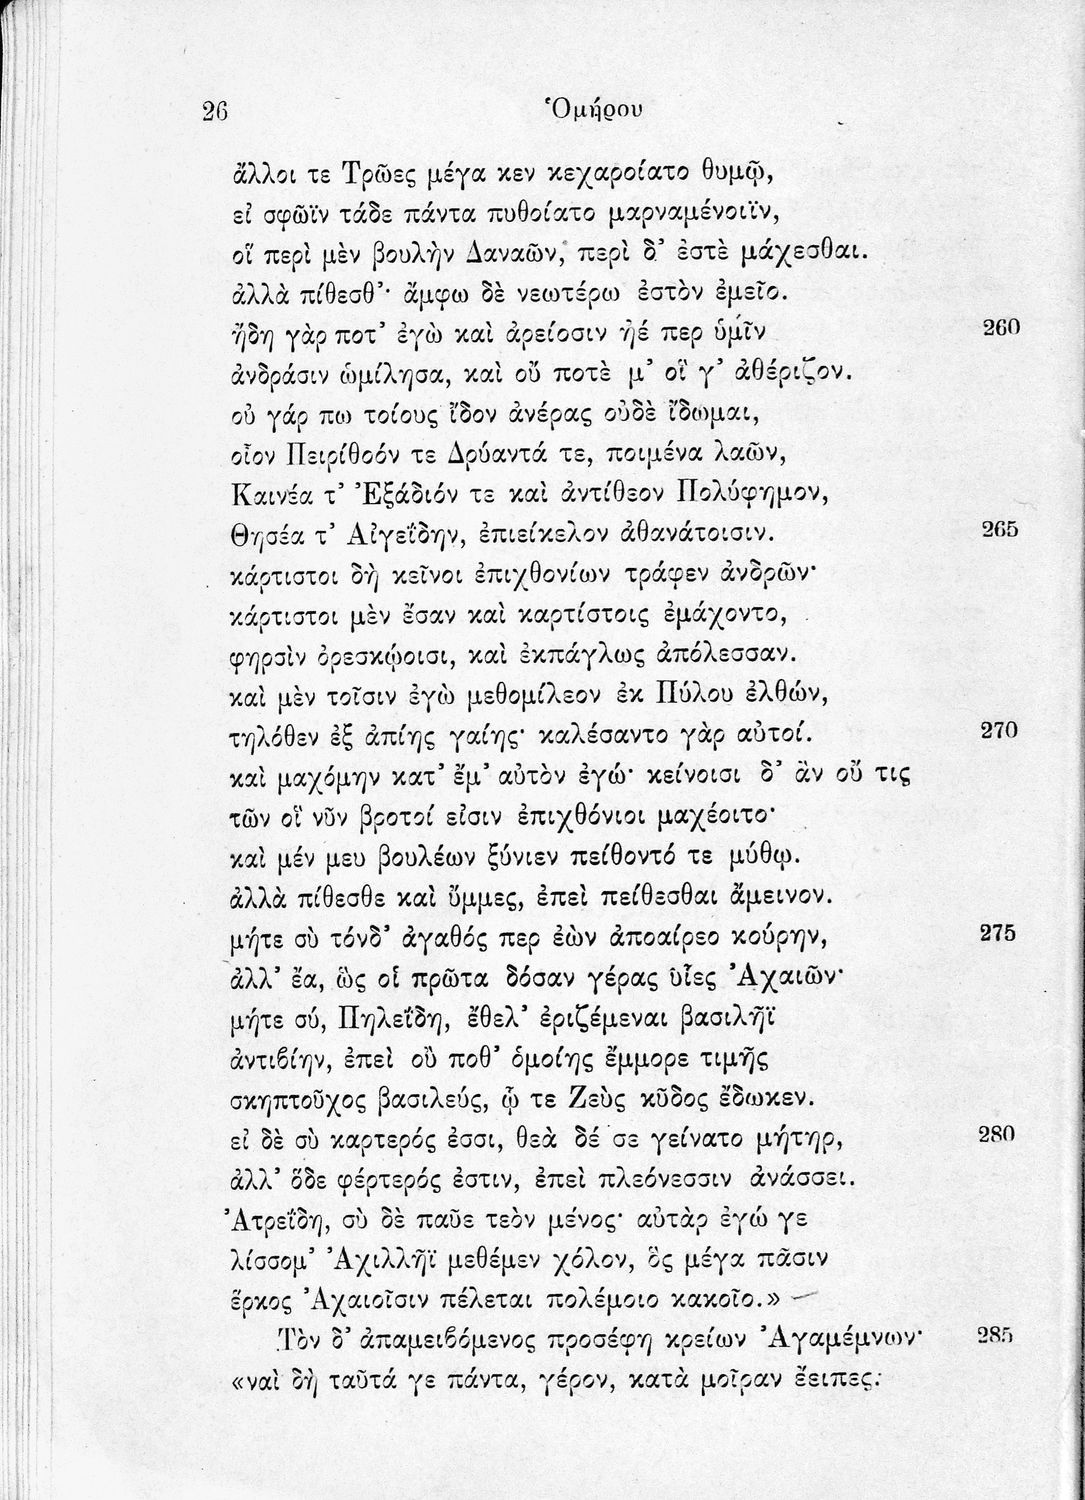 26 Ὁμήρου
ἄλλοι τε Τρῶες μέγα κεν κεχαροίατο θυμῷ,
εἰ σφῶϊν τάδε πάντα πυθοίατο μαρναμένοιϊν,
οἳ περὶ μὲν βουλὴν Δαναῶν, περὶ δ’ ἐστὲ μάχεσθαι.
ἀλλὰ πίθεσθ’· ἄμφω δὲ νεωτέρω ἐστὸν ἐμεῖο.
ἤδη γάρ ποτ’ ἐγὼ καὶ ἀρείοσιν ἠέ περ ὑμῖν 260
ἀνδράσιν ὡμίλησα, καὶ οὔ ποτὲ μ’ οἵ γ’ ἀθέριζον.
οὐ γάρ πω τοίους ἴδον ἀνέρας οὐδὲ ἴδωμαι,
οἷον Πειρίθοόν τε Δρύαντά τε, ποιμένα λαῶν,
Καινέα τ’ Ἐξάδιόν τε καὶ ἀντίθεον Πολύφημον,
Θησέα τ’ Αἰγεΐδην, ἐπιείκελον ἀθανάτοισιν. 265
κάρτιστοι δὴ κεῖνοι ἐπιχθονίων τράφεν ἀνδρῶν·
κάρτιστοι μὲν ἔσαν καὶ καρτίστοις ἐμάχοντο,
φηρσὶν ὀρεσκῴοισι, καὶ ἐκπάγλως ἀπόλεσσαν.
καὶ μὲν τοῖσιν ἐγὼ μεθομίλεον ἐκ Πύλου ἐλθών,
τηλόθεν ἐξ ἀπίης γαίης· καλέσαντο γὰρ αὐτοί. 270
καὶ μαχόμην κατ’ ἔμ’ αὐτὸν ἐγώ· κείνοισι δ’ ἂν οὔ τις
τῶν οἳ νῦν βροτοί εἰσιν ἐπιχθόνιοι μαχέοιτο·
καὶ μέν μευ βουλέων ξύνιεν πείθοντό τε μύθῳ.
ἀλλὰ πίθεσθε καὶ ὔμμες, ἐπεὶ πείθεσθαι ἄμεινον.
μήτε σὺ τόνδ’ ἀγαθός περ ἐὼν ἀποαίρεο κούρην, 275
ἀλλ’ ἔα, ὥς οἱ πρῶτα δόσαν γέρας υἷες Ἀχαιῶν·
μήτε σύ, Πηλεΐδη, ἔθελ’ ἐριζέμεναι βασιλῆϊ
ἀντιβίην, ἐπεὶ οὔ ποθ’ ὁμοίης ἔμμορε τιμῆς
σκηπτοῦχος βασιλεύς, ᾧ τε Ζεὺς κῦδος ἔδωκεν.
εἰ δὲ σὺ καρτερός ἐσσι, θεὰ δέ σε γείνατο μήτηρ, 280
ἀλλ’ ὅδε φέρτερός ἐστιν, ἐπεὶ πλεόνεσσιν ἀνάσσει.
Ἀτρεΐδη, σὺ δὲ παῦε τεὸν μένος· αὐτὰρ ἐγώ γε
λίσσομ’ Ἀχιλλῆϊ μεθέμεν χόλον, ὃς μέγα πᾶσιν
ἕρκος Ἀχαιοῖσιν πέλεται πολέμοιο κακοῖο.»
Τὸν δ’ ἀπαμειβόμενος προσέφη κρείων Ἀγαμέμνων· 285
«ναὶ δὴ ταῦτά γε πάντα, γέρον, κατὰ μοῖραν ἔειπες·